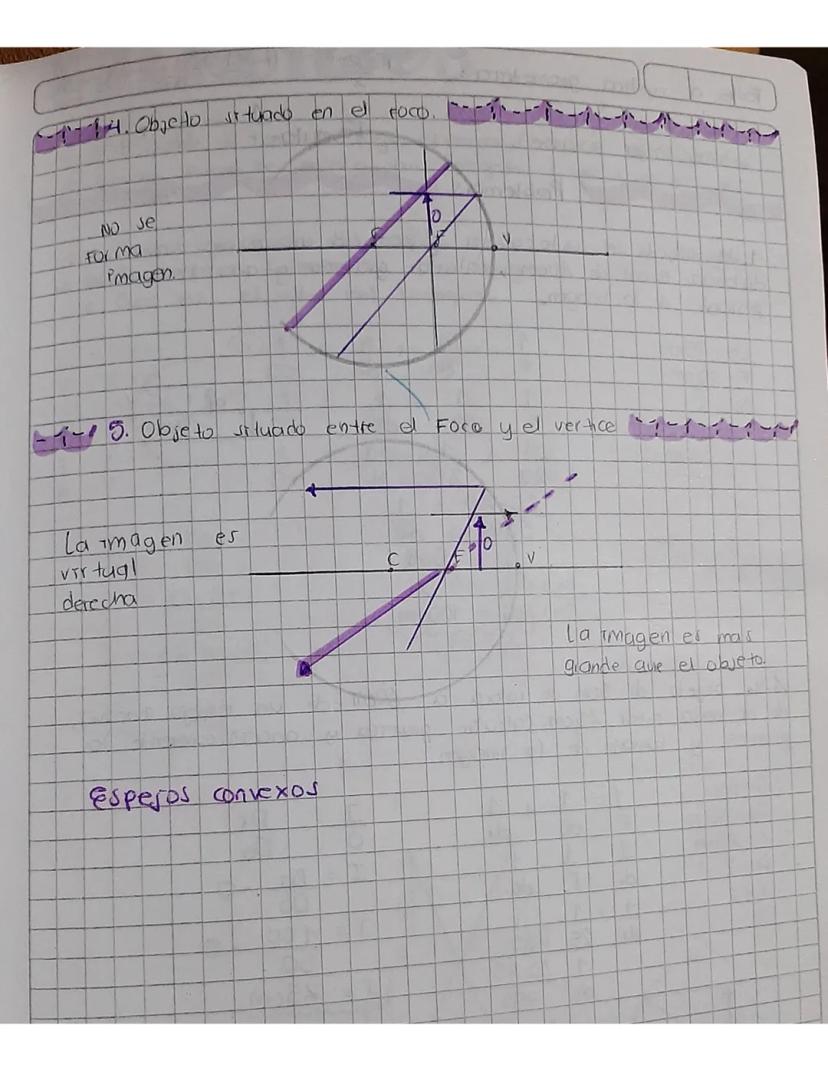 4. Objeto situado en el foco.
No se
Forma
imagen.
C
O
F
V
5. Objeto situado entre el Foco y el vertice
La imagen es
virtual
derecha
C
F
O
V
La imagen es mas
grande que el objeto.
Espejos convexos